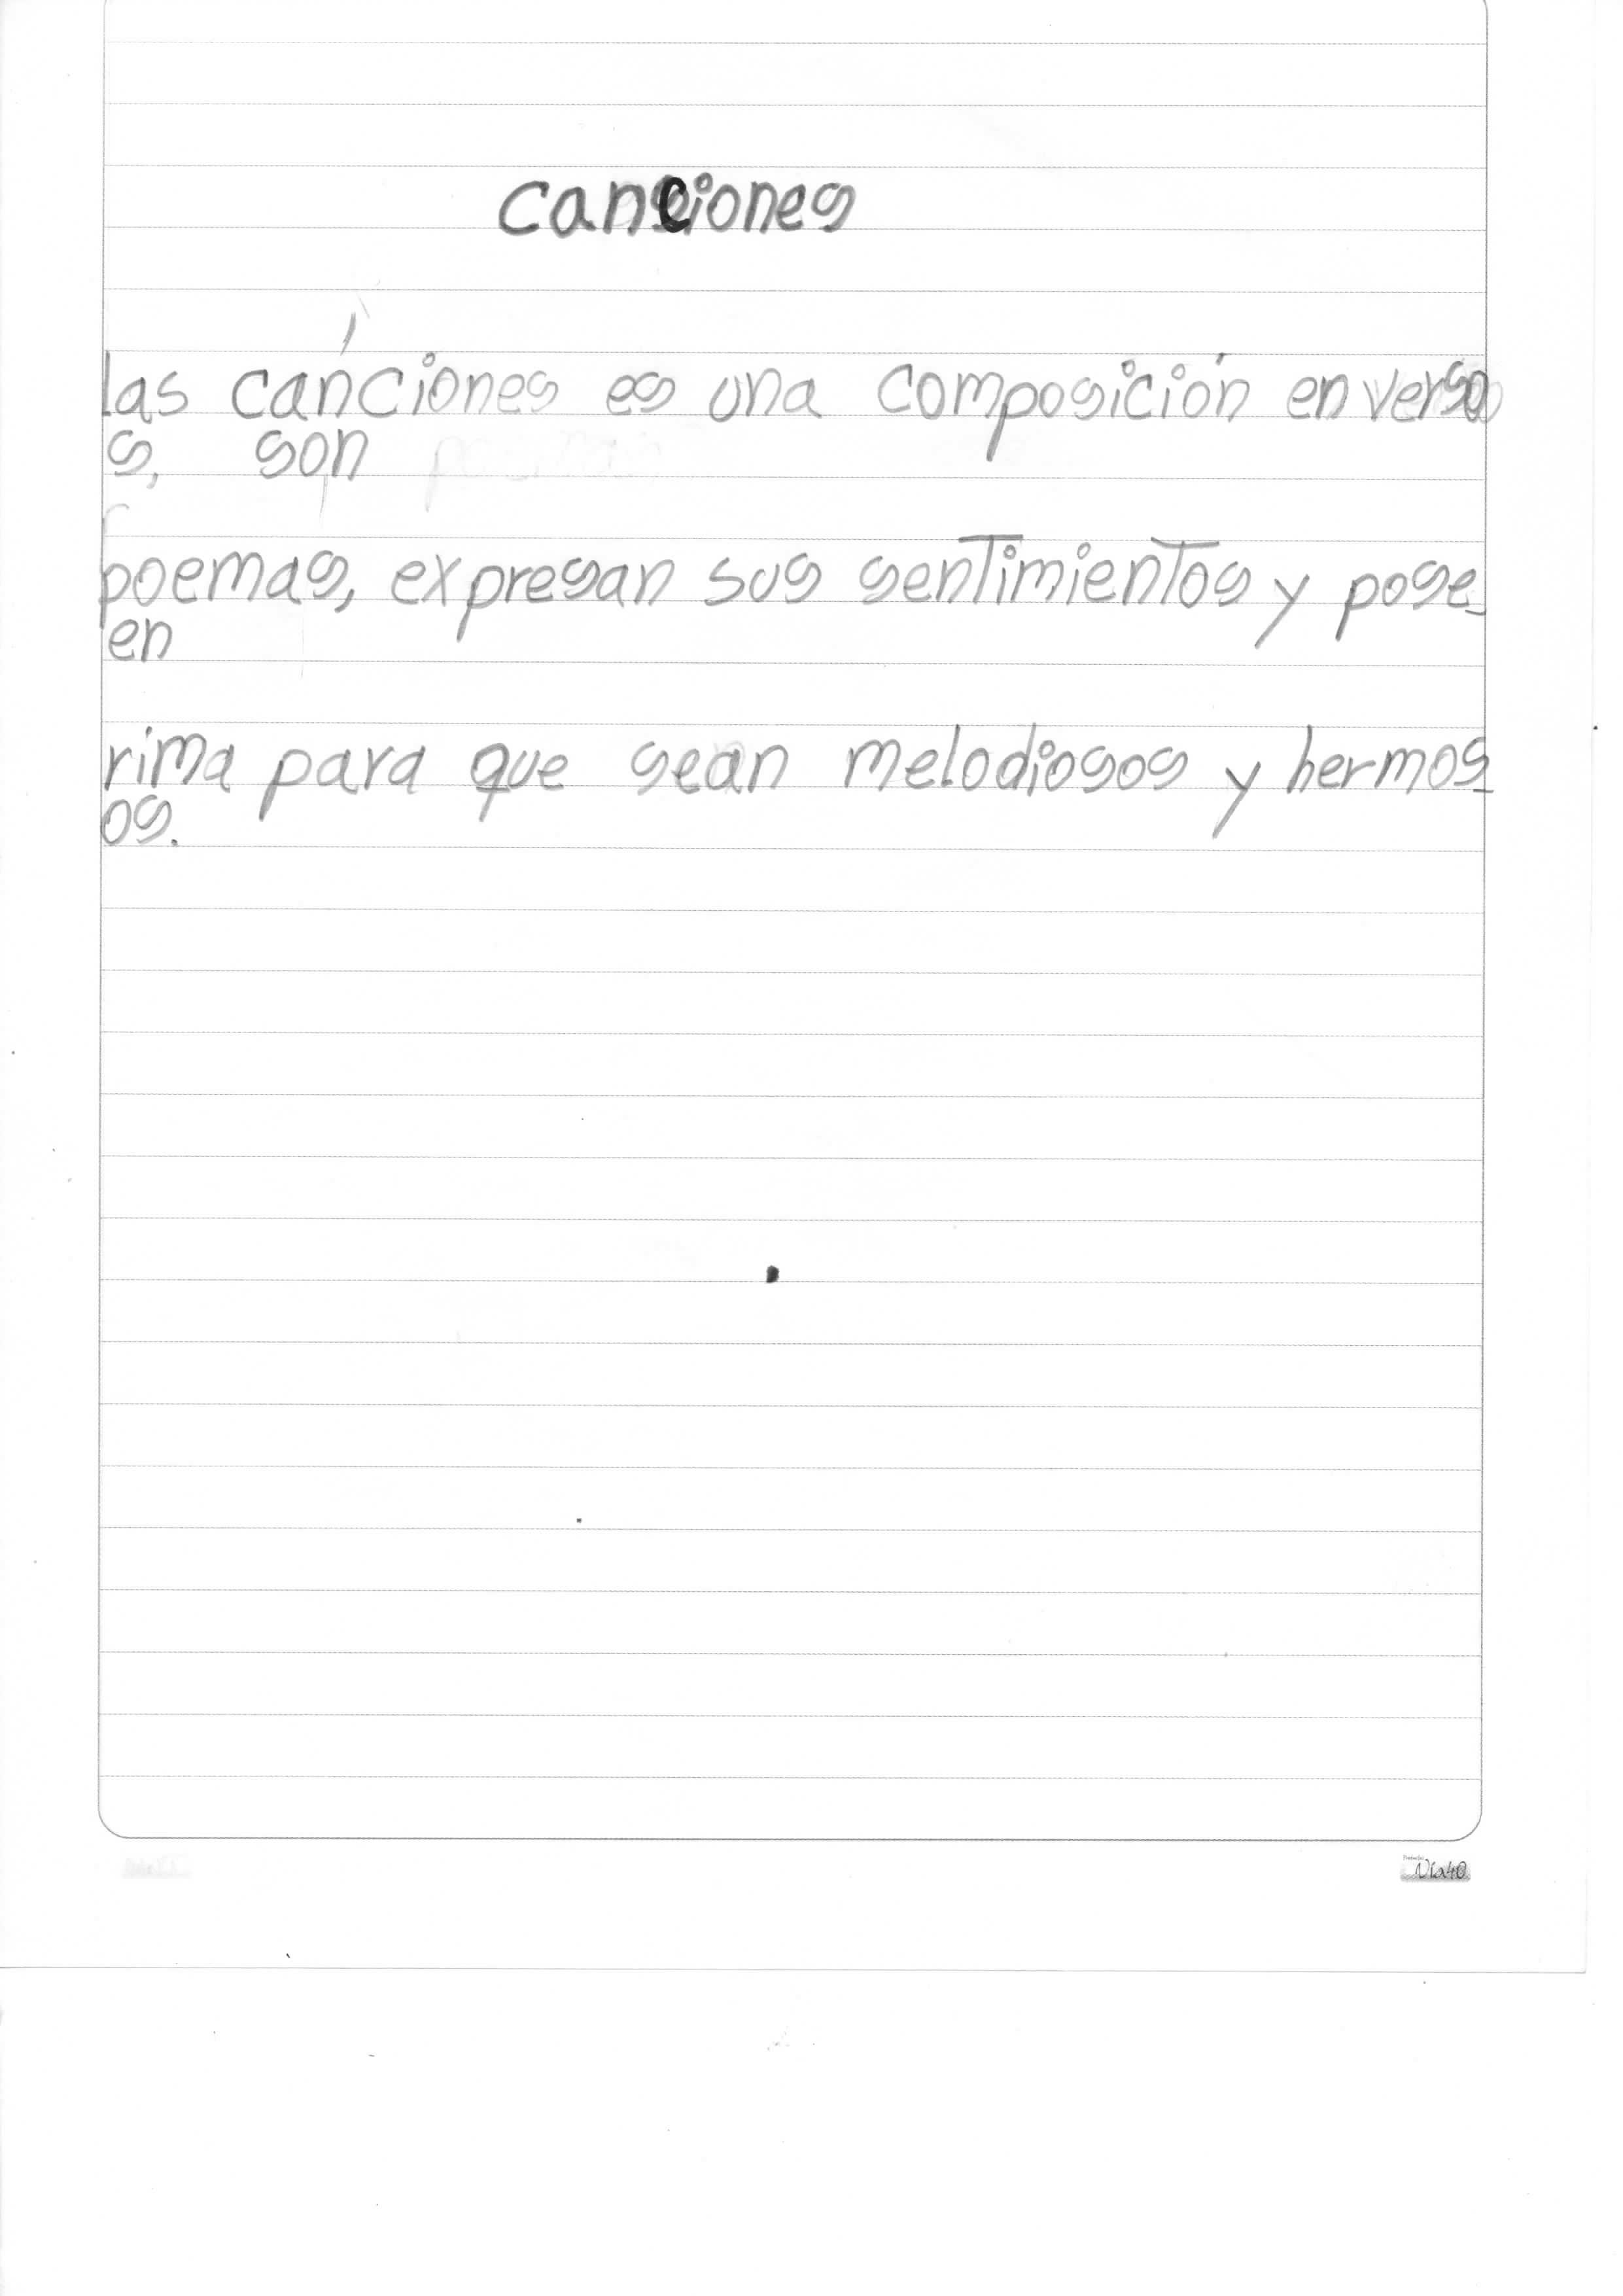 canciones
las canciones es una composición en verso
s, son
poemas, expresan sus sentimientos y pose_
en
rima para que sean melodiosos y hermos_
os.
Vía40